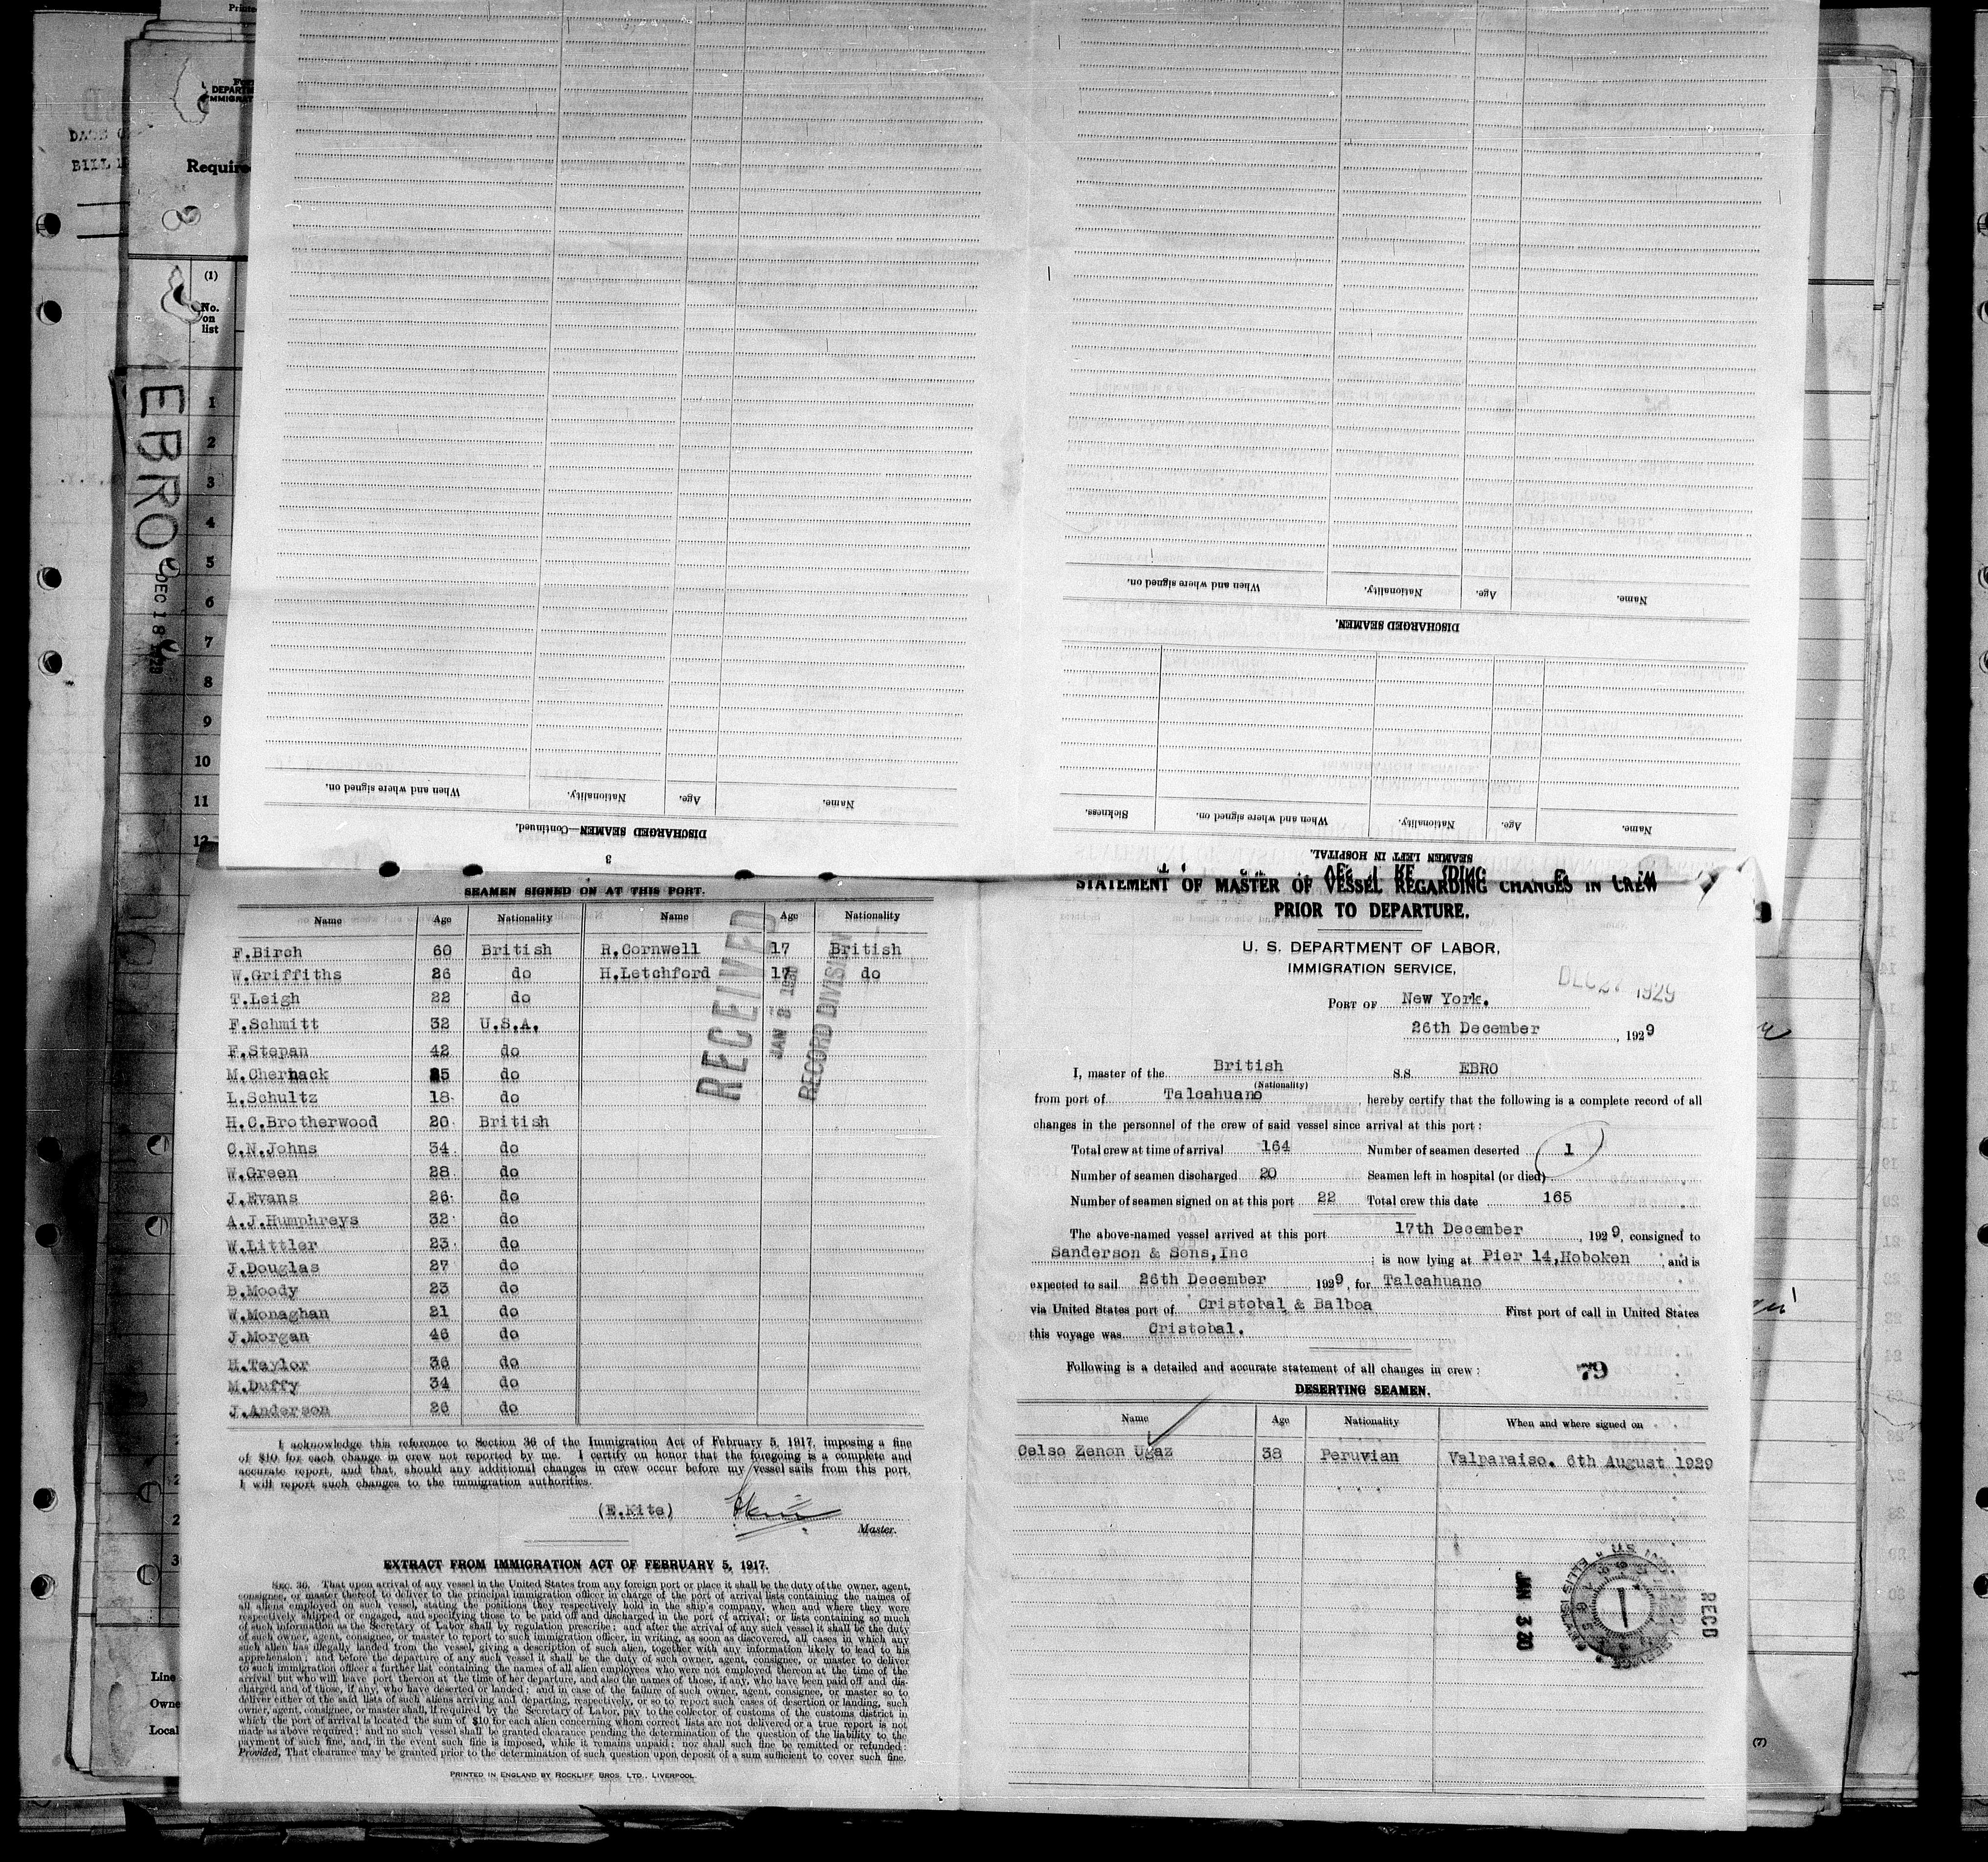 Printe
DEPARTM
IMMIGRAT
DATE O
BILL
Require
(1)
No.
on
list
EBRO
DEC 18
1
2
3
4
5
6
7
8
9
10
11
12
Line
Owne
Local
(7)
When and where signed on.
Nationality.
Age.
Name.
DISCHARGED SEAMEN.
Sickness.
When and where signed on.
Nationality.
Age.
Name.
SEAMEN LEFT IN HOSPITAL.
When and where signed on.
Nationality.
Age.
Name.
DISCHARGED SEAMEN—Continued.
3
SEAMEN SIGNED ON AT THIS PORT.
Name Age Nationality Name Age Nationality
F.Birch 60 British R.Cornwell 17 British
W.Griffiths 26 do H.Letchford 17 do
T.Leigh 22 do
F.Schmitt 32 U.S.A.
F.Stepan 42 do
M.Chernack 25 do
L.Schultz 18 do
H.C.Brotherwood 20 British
C.N.Johns 34 do
W.Green 28 do
J.Evans 26 do
A.J.Humphreys 32 do
W.Littler 23 do
J.Douglas 27 do
B.Moody 23 do
W.Monaghan 21 do
J.Morgan 46 do
H.Taylor 36 do
M.Duffy 34 do
J.Anderson 26 do
RECEIVED
JAN 8 1930
RECORD DIVISION
I acknowledge this reference to Section 36 of the Immigration Act of February 5, 1917, imposing a fine
of $10 for each change in crew not reported by me. I certify on honor that the foregoing is a complete and
accurate report, and that, should any additional changes in crew occur before my vessel sails from this port,
I will report such changes to the immigration authorities.
(E.Kite)
Master.
EXTRACT FROM IMMIGRATION ACT OF FEBRUARY 5, 1917.
SEC. 36. That upon arrival of any vessel in the United States from any foreign port or place it shall be the duty of the owner, agent,
consignee, or master thereof to deliver to the principal immigration officer in charge of the port of arrival lists containing the names of
all aliens employed on such vessel, stating the positions they respectively hold in the ship's company, when and where they were
respectively shipped or engaged, and specifying those to be paid off and discharged in the port of arrival; or lists containing so much
of such information as the Secretary of Labor shall by regulation prescribe; and after the arrival of any such vessel it shall be the duty
of such owner, agent, consignee, or master to report to such immigration officer, in writing, as soon as discovered, all cases in which any
such alien has illegally landed from the vessel, giving a description of such alien, together with any information likely to lead to his
apprehension; and before the departure of any such vessel it shall be the duty of such owner, agent, consignee, or master to deliver
to such immigration officer a further list containing the names of all alien employees who were not employed thereon at the time of the
arrival but who will leave port thereon at the time of her departure, and also the names of those, if any, who have been paid off and dis-
charged and of those, if any, who have deserted or landed; and in case of the failure of such owner, agent, consignee, or master so to
deliver either of the said lists of such aliens arriving and departing, respectively, or so to report such cases of desertion or landing, such
owner, agent, consignee, or master shall, if required by the Secretary of Labor, pay to the collector of customs of the customs district in
which the port of arrival is located the sum of $10 for each alien concerning whom correct lists are not delivered or a true report is not
made as above required; and no such vessel shall be granted clearance pending the determination of the question of the liability to the
payment of such fine, and, in the event such fine is imposed, while it remains unpaid; nor shall such fine be remitted or refunded:
Provided, That clearance may be granted prior to the determination of such question upon deposit of a sum sufficient to cover such fine.
PRINTED IN ENGLAND BY ROCKLIFF BROS. LTD., LIVERPOOL.
STATEMENT OF MASTER OF VESSEL REGARDING CHANGES IN CREW
PRIOR TO DEPARTURE.
U. S. DEPARTMENT OF LABOR,
IMMIGRATION SERVICE,
DEC 27 1929
PORT OF New York.
26th December, 1929
I, master of the British S.S. EBRO
(Nationality)
from port of Talcahuano hereby certify that the following is a complete record of all
changes in the personnel of the crew of said vessel since arrival at this port:
Total crew at time of arrival 164 Number of seamen deserted 1
Number of seamen discharged 20 Seamen left in hospital (or died)
Number of seamen signed on at this port 22 Total crew this date 165
The above-named vessel arrived at this port 17th December, 1929, consigned to
Sanderson & Sons,Inc ; is now lying at Pier 14,Hoboken, and is
expected to sail 26th December 1929, for Talcahuano
via United States port of Cristobal & Balboa First port of call in United States
this voyage was Cristobal.
Following is a detailed and accurate statement of all changes in crew:
79
DESERTING SEAMEN.
Name Age Nationality When and where signed on
Celso Zenon Ugaz 38 Peruvian Valparaiso. 6th August 1929
JAN 3 30
REC'D